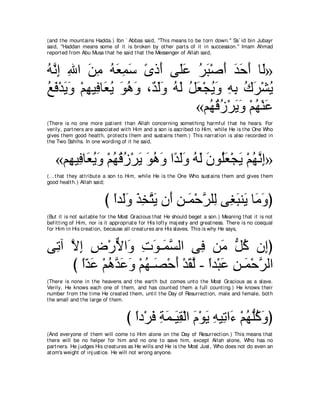 (and the mountains Hadda.) Ibn `Abbas said, "This means to be torn down.'' Sa`id bin Jubayr
said, "Haddan means some of it is broken by other parts of it in succession.'' Imam Ahmad
reported from Abu Musa that he said that the Messenger of Allah said,
«لَا أَحَدَ أَصْبَرُ عَلَى أَذًى سَمِعَهُ مِنَ اللهِ إِنَّهُ
يُشْرَكُ بِهِ وَيُجْعَلُ لَهُ وَلَدٌ، وَهُوَ يُعَافِيهِمْ وَيَدْفَعُ
عَنْهُمْ وَيَرْزُقُهُم»
(There is no one more patient than Allah concerning something harmful that he hears. For
verily, partners are associated with Him and a son is ascribed to Him, while He is the One Who
gives them good health, protects them and sustains them.) This narration is also recorded in
the Two Sahihs. In one wording of it he said,
«إِنَّهُمْ يَجْعَلُونَ لَهُ وَلَدًا وَهُوَ يَرْزُقُهُمْ وَيُعَافِيهِم»
(...that they attribute a son to Him, while He is the One Who sustains them and gives them
good health.) Allah said;
(وَمَا يَنبَغِى لِلرَّحْمَـنِ أَن يَتَّخِذَ وَلَداً )
(But it is not suitable for the Most Gracious that He should beget a son.) Meaning that it is not
befitting of Him, nor is it appropriate for His lofty majesty and greatness. There is no coequal
for Him in His creation, because all creatures are His slaves. This is why He says,
(إِن كُلُّ مَن فِى السَّمَـوَتِ وَالاٌّرْضِ إِلاَّ آتِى
الرَّحْمَـنِ عَبْداً - لَّقَدْ أَحْصَـهُمْ وَعَدَّهُمْ عَدّاً )
(There is none in the heavens and the earth but comes unto the Most Gracious as a slave.
Verily, He knows each one of them, and has counted them a full counting.) He knows their
number from the time He created them, until the Day of Resurrection, male and female, both
the small and the large of them.
(وَكُلُّهُمْ ءَاتِيهِ يَوْمَ الْقِيَـمَةِ فَرْداً )
(And everyone of them will come to Him alone on the Day of Resurrection.) This means that
there will be no helper for him and no one to save him, except Allah alone, Who has no
partners. He judges His creatures as He wills and He is the Most Just, Who does not do even an
atom's weight of injustice. He will not wrong anyone.